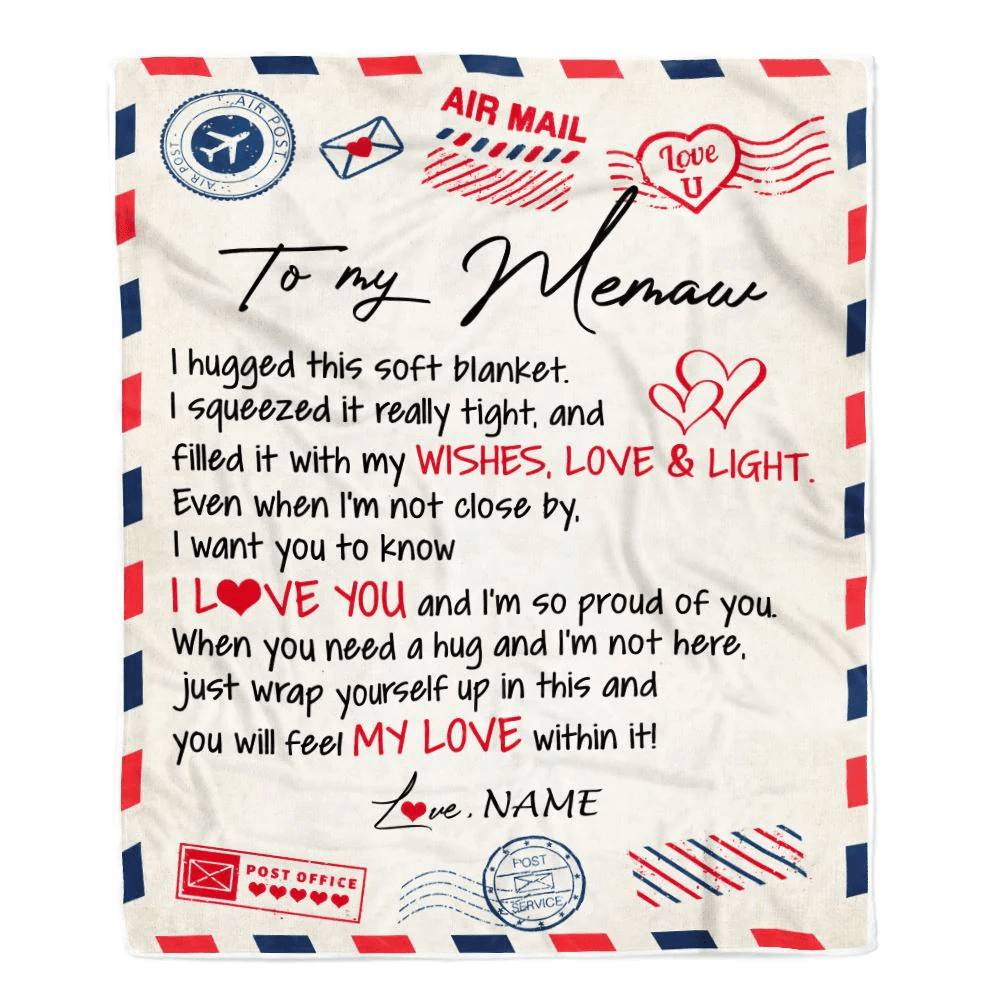 AIR POST
AIR POST
AIR POST
AIR MAIL
Love
U
To my Memaw
I hugged this soft blanket.
I squeezed it really tight, and
filled it with my WISHES, LOVE & LIGHT.
Even when I'm not close by,
I want you to know
I L❤VE YOU and I'm so proud of you.
When you need a hug and I'm not here,
just wrap yourself up in this and
you will feel MY LOVE within it!
L❤ve, NAME
POST OFFICE
POST
SERVICE